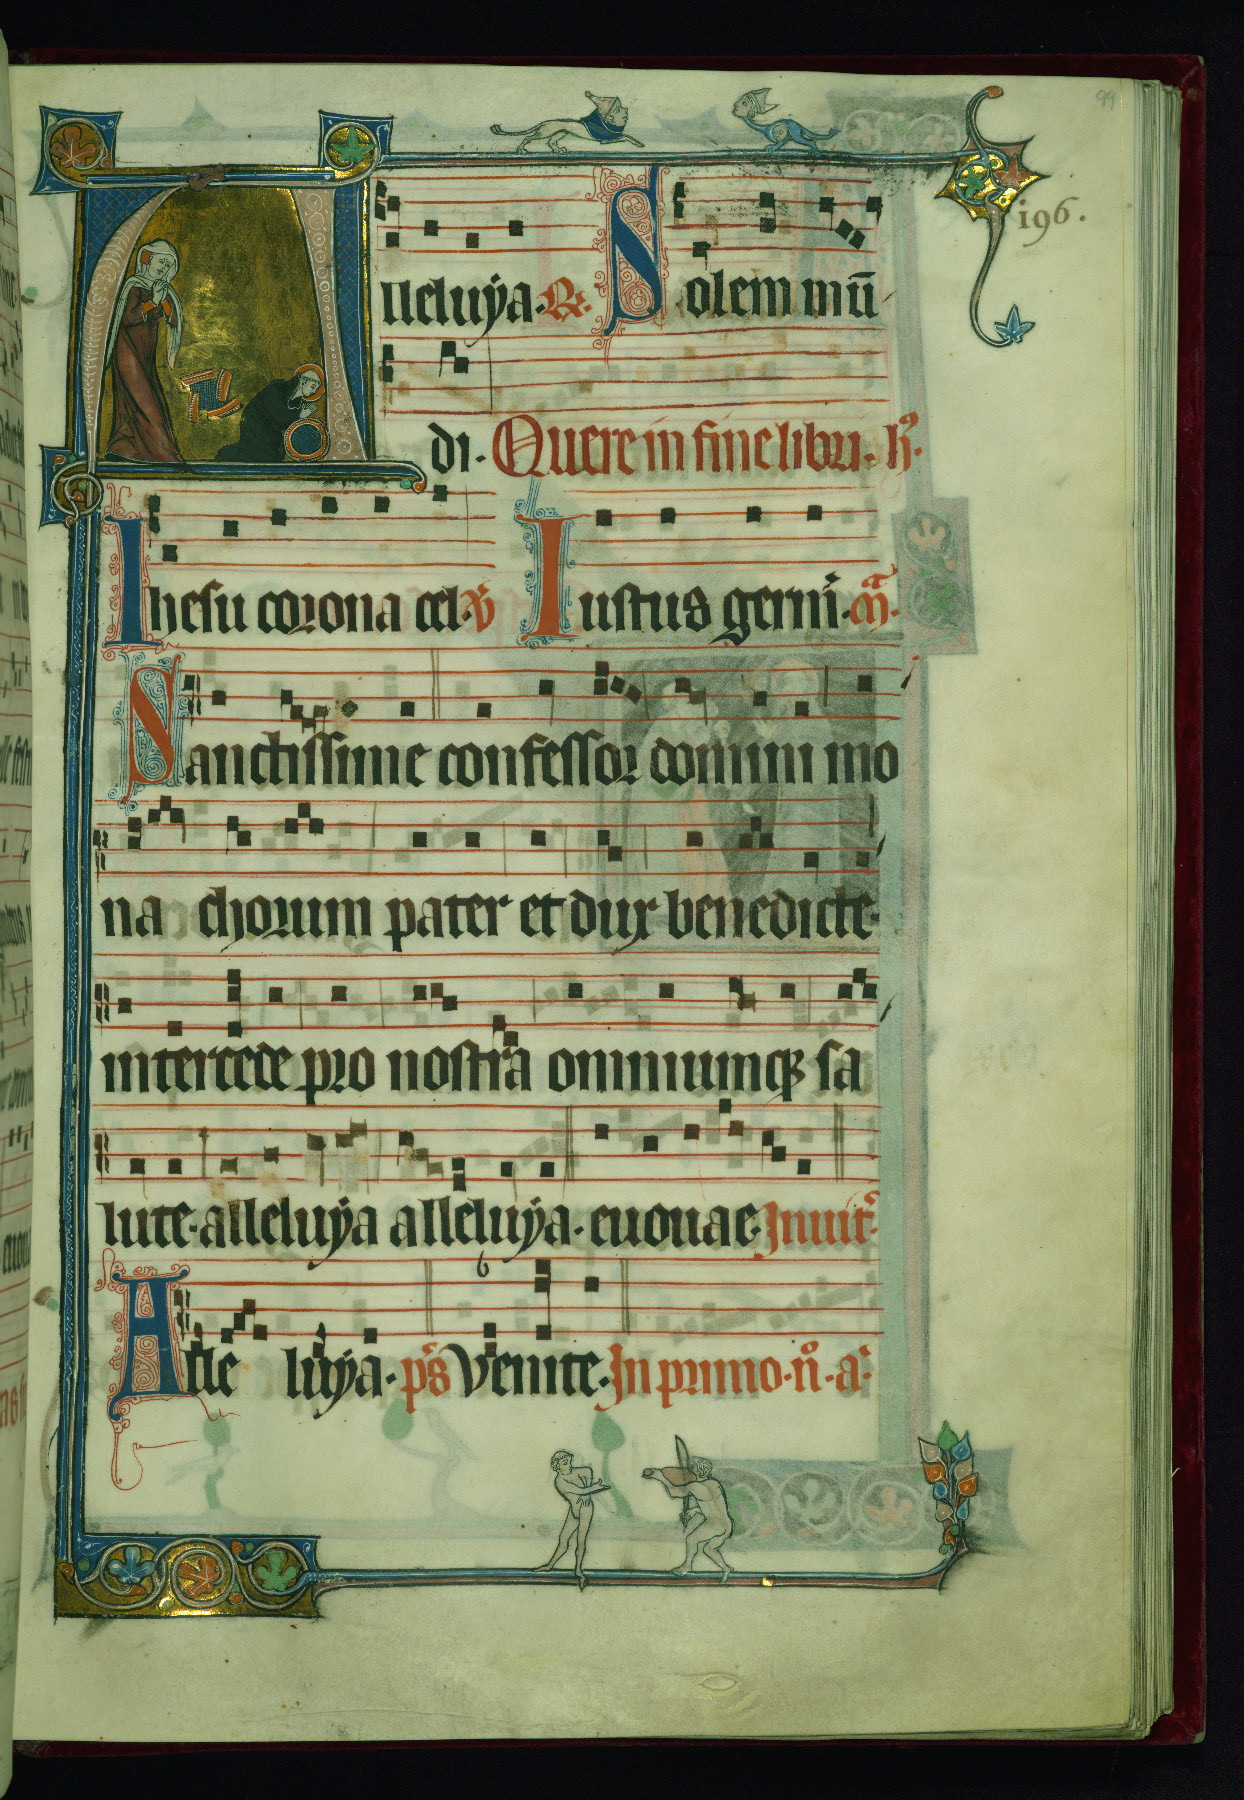 99
196.
Alleluÿa. R. Solem mū
di. Quere in fine libri. h̾.
Ihesu corona cel. v̄ Iustus germī. m̄.
Sanctissime confessor domini mo
nachorum pater et dux benedicte.
intercede pro nostra omniumqꝫ sa
lute. alleluÿa alleluÿa. euouae. Inuit̾.
Alleluÿa. ps̄ Venite. In primo. n̊. a̾